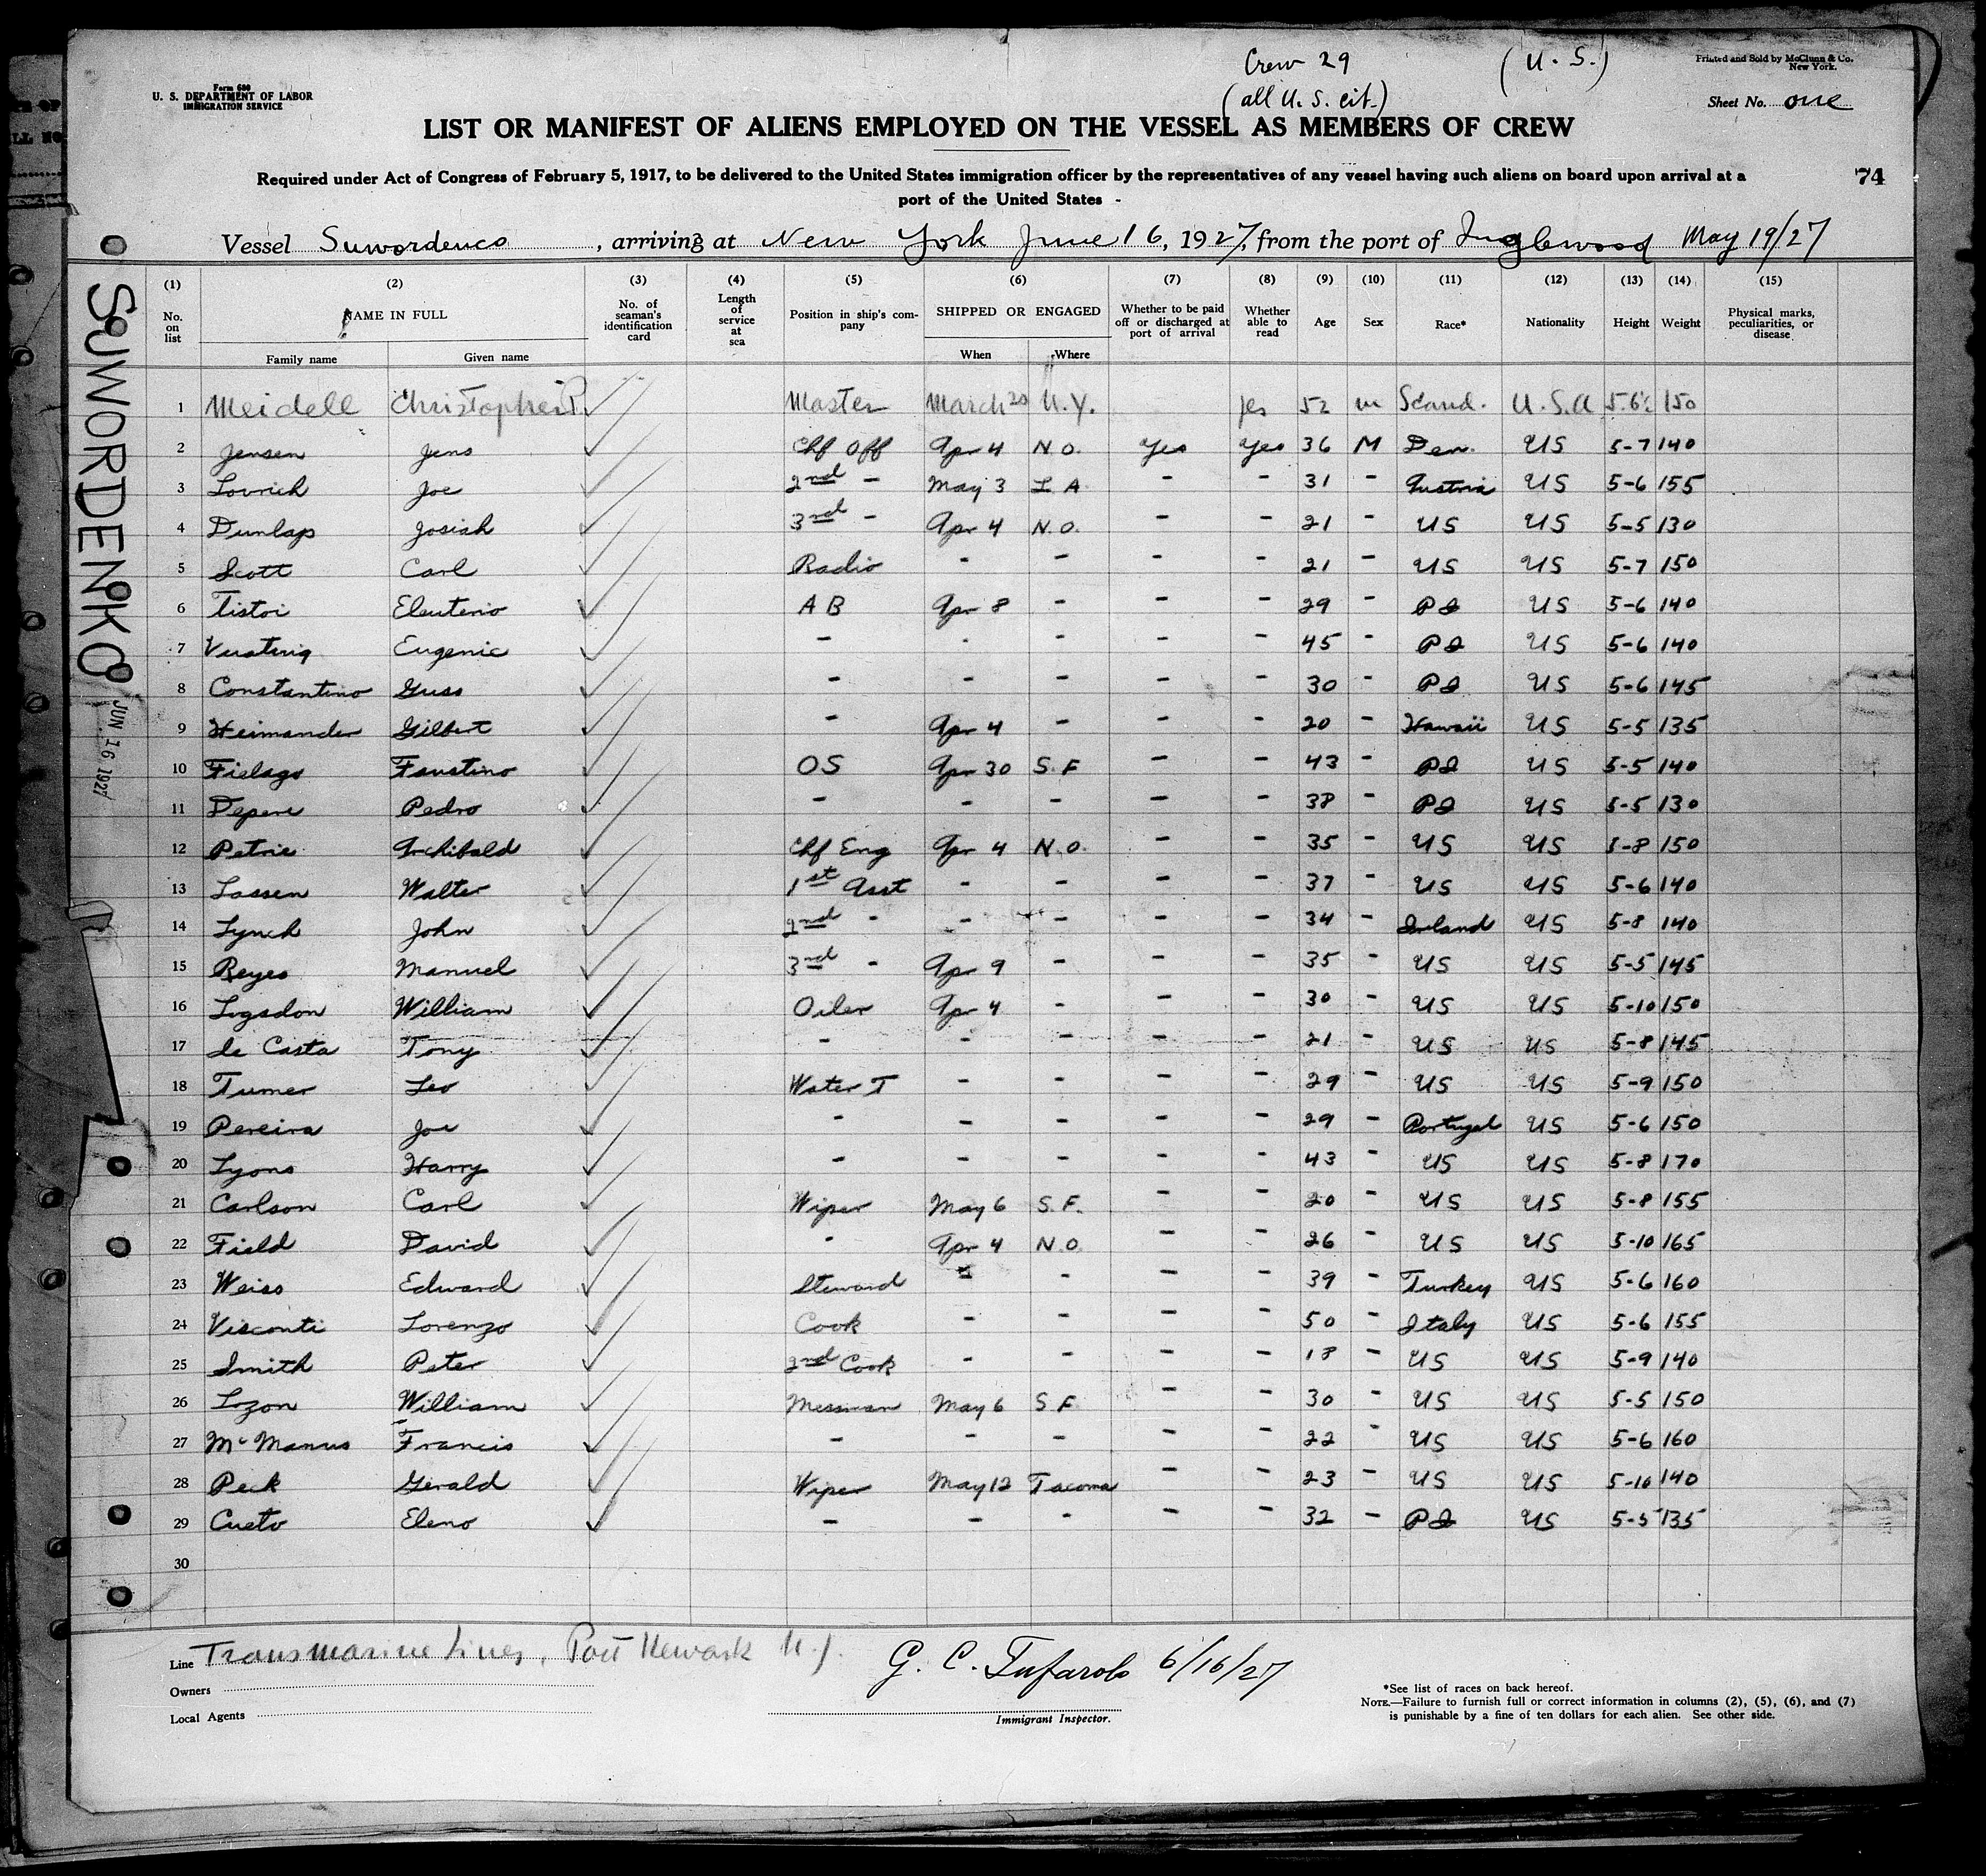 Crew 29
(all U. S. cit.)
(U. S.)
Printed and Sold by McClunn & Co.
New York.
Form 680
U. S. DEPARTMENT OF LABOR
IMMIGRATION SERVICE
Sheet No. one
LIST OR MANIFEST OF ALIENS EMPLOYED ON THE VESSEL AS MEMBERS OF CREW
Required under Act of Congress of February 5, 1917, to be delivered to the United States immigration officer by the representatives of any vessel having such aliens on board upon arrival at a
port of the United States -
74
Vessel Suwordenco, arriving at New York June 16, 1927, from the port of Inglewood May 19/27
SUWORDENKO
JUN 16 1927
(1) (2) (3) (4) (5) (6) (7) (8) (9) (10) (11) (12) (13) (14) (15)
No. on list
NAME IN FULL
Family name Given name
No. of seaman's identification card
Length of service at sea
Position in ship's company
SHIPPED OR ENGAGED
When Where
Whether to be paid off or discharged at port of arrival
Whether able to read
Age Sex Race* Nationality Height Weight
Physical marks, peculiarities, or disease
1 Meidell Christopher P. Master March 20 N.Y. yes 52 m Scand. U.S.A 5.6½ 150
2 Jensen Jens Chf Off Apr 4 N.O. Yes Yes 36 M Den. US 5-7 140
3 Lovrich Joe 2nd - May 3 L A - - 31 - Austria US 5-6 155
4 Dunlap Josiah 3rd - Apr 4 N.O. - - 21 - US US 5-5 130
5 Scott Carl Radio - - - - 21 - US US 5-7 150
6 Tistoi Eleuterio A B Apr 8 - - - 29 - PI US 5-6 140
7 Eugenic - - - - - 45 - PI US 5-6 140
8 Constantino Guss - - - - - 30 - PI US 5-6 145
9 Heimander Gilbert - Apr 4 - - - 20 - Hawaii US 5-5 135
10 Fielago Faustino OS Apr 30 S.F - - 43 - PI US 5-5 140
11 Depene Pedro - - - - - 38 - PI US 5-5 130
12 Petrie Archibald Chf Eng Apr 4 N.O. - - 35 - US US 5-8 150
13 Lassen Walter 1st Asst - - - - 37 - US US 5-6 140
14 Lynch John 2nd - - - - - 34 - Ireland US 5-8 140
15 Reyes Manuel 3rd - Apr 9 - - - 35 - US US 5-5 145
16 Logsdon William Oiler Apr 4 - - - 30 - US US 5-10 150
17 de Casta Tony - - - - - 21 - US US 5-8 145
18 Turner Leo Water T - - - - 29 - US US 5-9 150
19 Pereira Joe - - - - - 29 - Portugal US 5-6 150
20 Lyons Harry - - - - - 43 - US US 5-8 170
21 Carlson Carl Wiper May 6 S.F. - - 20 - US US 5-8 155
22 Field David - Apr 4 N.O. - - 26 - US US 5-10 165
23 Weiss Edward Steward - - - - 39 - Turkey US 5-6 160
24 Visconti Lorenzo Cook - - - - 50 - Italy US 5-6 155
25 Smith Peter 2nd Cook - - - - 18 - US US 5-9 140
26 Lozon William Messman May 6 S F - - 30 - US US 5-5 150
27 McManus Francis - - - - - 22 - US US 5-6 160
28 Peck Gerald Wiper May 12 Tacoma - - 23 - US US 5-10 140
29 Cueto Eleno - - - - - 32 - PI US 5-5 135
30
Line Transmarine Lines, Port Newark N.J.
Owners
Local Agents
G. C. Tufarolo 6/16/27
Immigrant Inspector.
*See list of races on back hereof.
NOTE.—Failure to furnish full or correct information in columns (2), (5), (6), and (7)
is punishable by a fine of ten dollars for each alien. See other side.